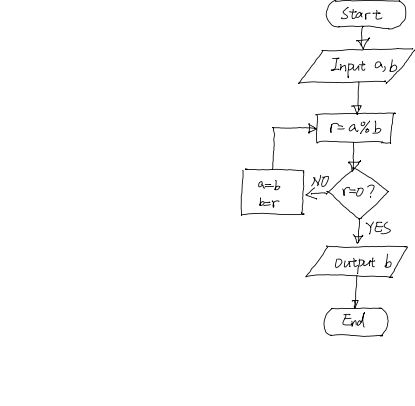 Start
Input a,b
r=a%b
NO
r=0?
a=b
b=r
YES
Output b
End